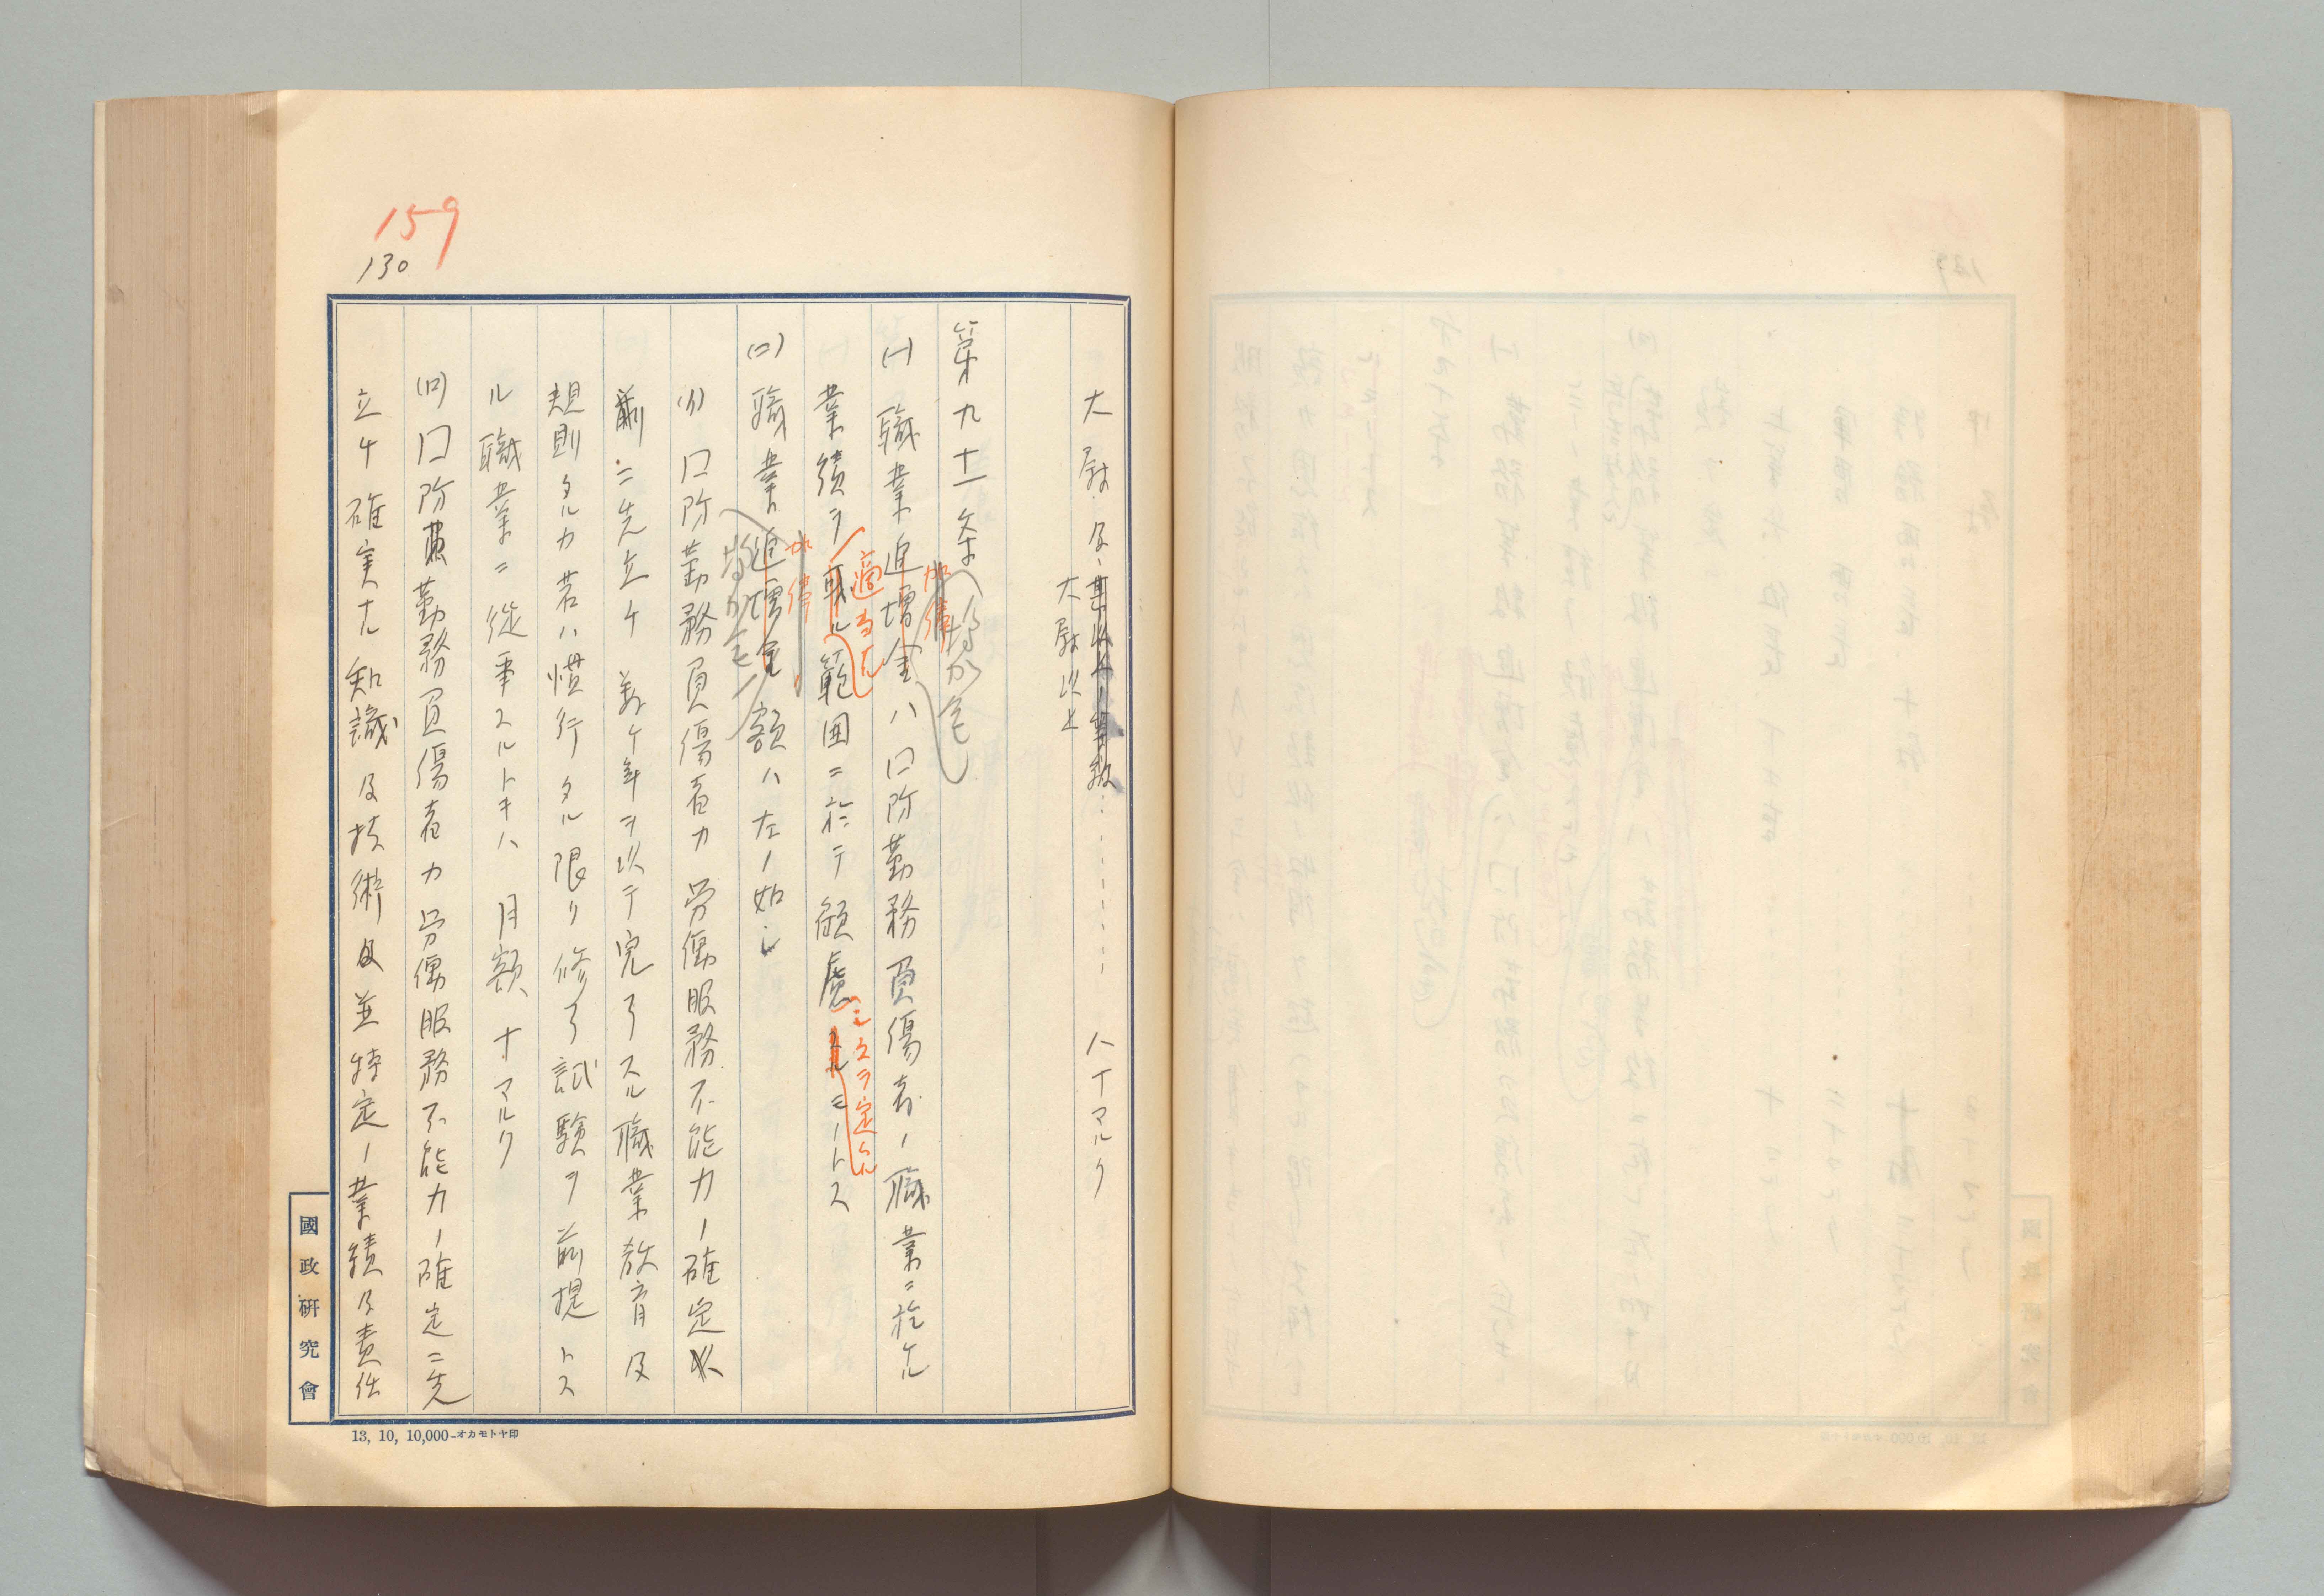 159
130
大尉及
大尉以上
……………八十マルク
第九十一条
(一) 職業追増金ハ囗防勤務負傷者ノ職業ニ於ケル
加俸
増加金
業績ヲ
適当ナル
範囲ニ於テ顧慮
モノトス
(二) 職業追増金額ハ左ノ如シ
加俸
増加金
(イ) 囗防勤務負傷者カ労働服務不能力ノ確定
前ニ先立ケ数ケ年ヲ以テ完了スル職業教育及
規則タルカ若ハ慣行タル限リ修了試験ヲ前提トス
ル職業ニ従事スルトキハ月額十マルク
(ロ) 囗防勤務負傷者カ労働服務不能力ノ確定ニ先
立チ確実ナル知識及技術及並特定ノ業績及責任
國政研究會
13, 10, 10,000—オカモトヤ印